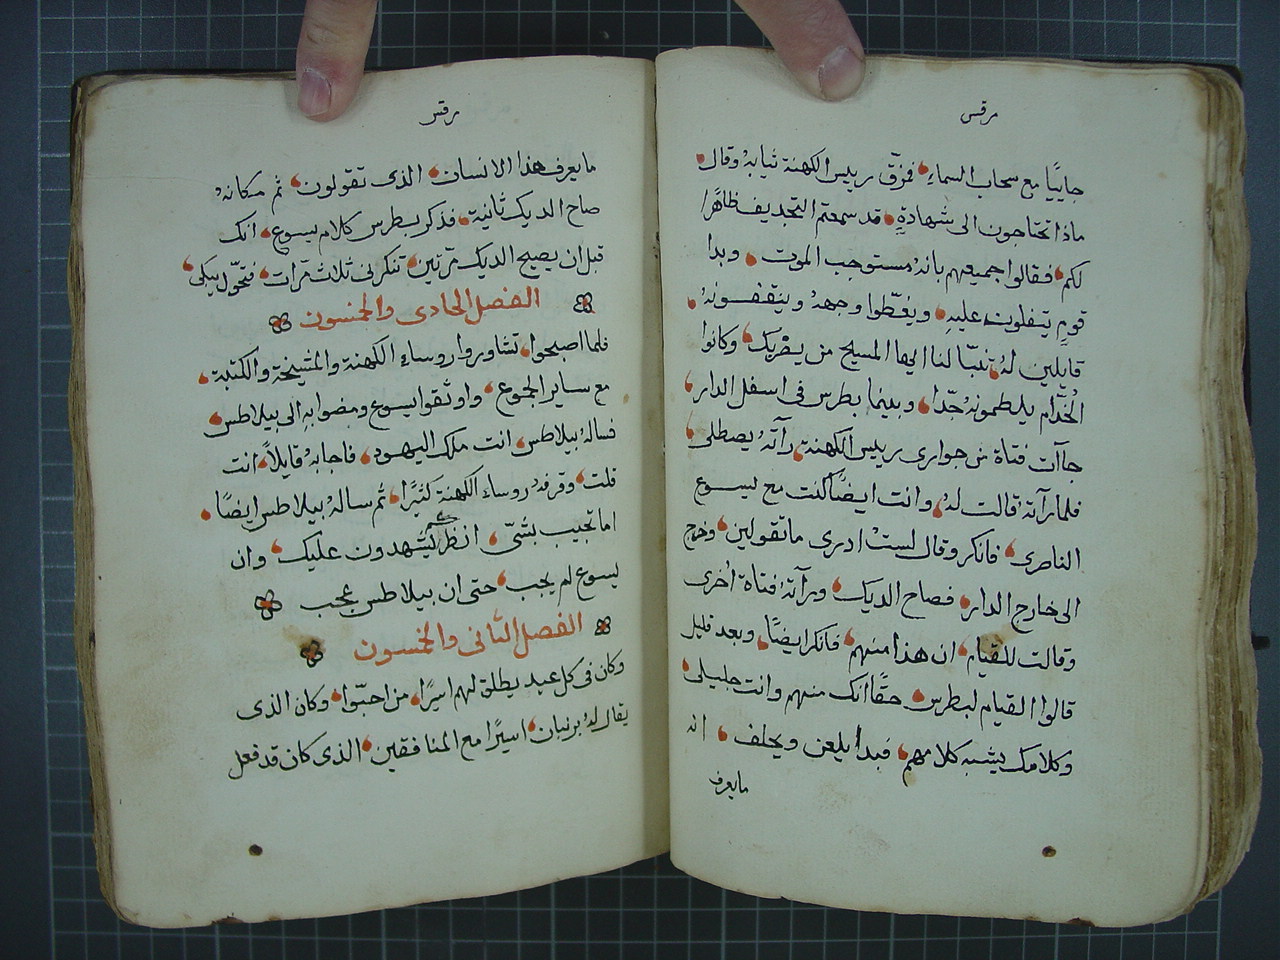 مرقس
جاييًا مع سحاب السماءِ فمزّق رييس الكهنة ثيابهُ وقال
ماذا تحتاجون الى شهادةٍ قد سمعتم التجديف ظاهرًا
لكم فقالوا جميعهم بانهُ مستوجب الموت وبدا
قوم يتفلون عليهِ ويغطّوا وجههُ وينقفونهُ
قايلين لهُ تنبّا لنا ايها المسيح من يضربك وكانوا
الخدّام يلطمونهُ جدّا وبينما بطرس فى اسفل الدار
جاآت فتاة من جوارى رييس الكهنة رآتهُ يصطلى
فلما رآتهُ قالت لهُ وانت ايضًا كنت مع يسوع
الناصرى فانكر وقال لستُ ادرى ما تقولين وخرج
الى خارج الدار فصاح الديك ورآتهُ فتاة اخرى
وقالت للقيام ان هذا منهم فانكر ايضًا وبعد قليل
قالوا القيام لبطرس حقًا انك منهم وانت جليلى
وكلامك يشبه كلامهم فبدا يلعن ويحلف انه
مايعرف
مرقس
مايعرف هذا الانسان الذى تقولون ثم مكانهُ
صاح الديك ثانية فذكر بطرس كلام يسوع انك
قبل ان يصيح الديك مرّتين تنكرنى ثلاث مرّات فتحّول يبكى
الفصل الحادى والخمسون
فلما اصبحوا تشاوروا روساءِ الكهنة والمشيخة والكتبة
مع ساير الجموع واوثقوا يسوع ومضوا بهِ الى بيلاطس
فسالهُ بيلاطس انت ملك اليهود فاجابهُ قايلاً انت
قلت وقرفهُ روساءِ الكهنة كثيرًا ثم سالهُ بيلاطس ايضًا
اما تجيب بشىّ انظر كم يشهدون عليك وان
يسوع لم يجب حتى ان بيلاطس عجب
الفصل الثانى والخمسون
وكان فى كل عيد يطلق لهم اسيرًا من احبّوا وكان الذى
يقال لهُ برنبان اسيرًا مع المنافقين الذى كان قد فعل